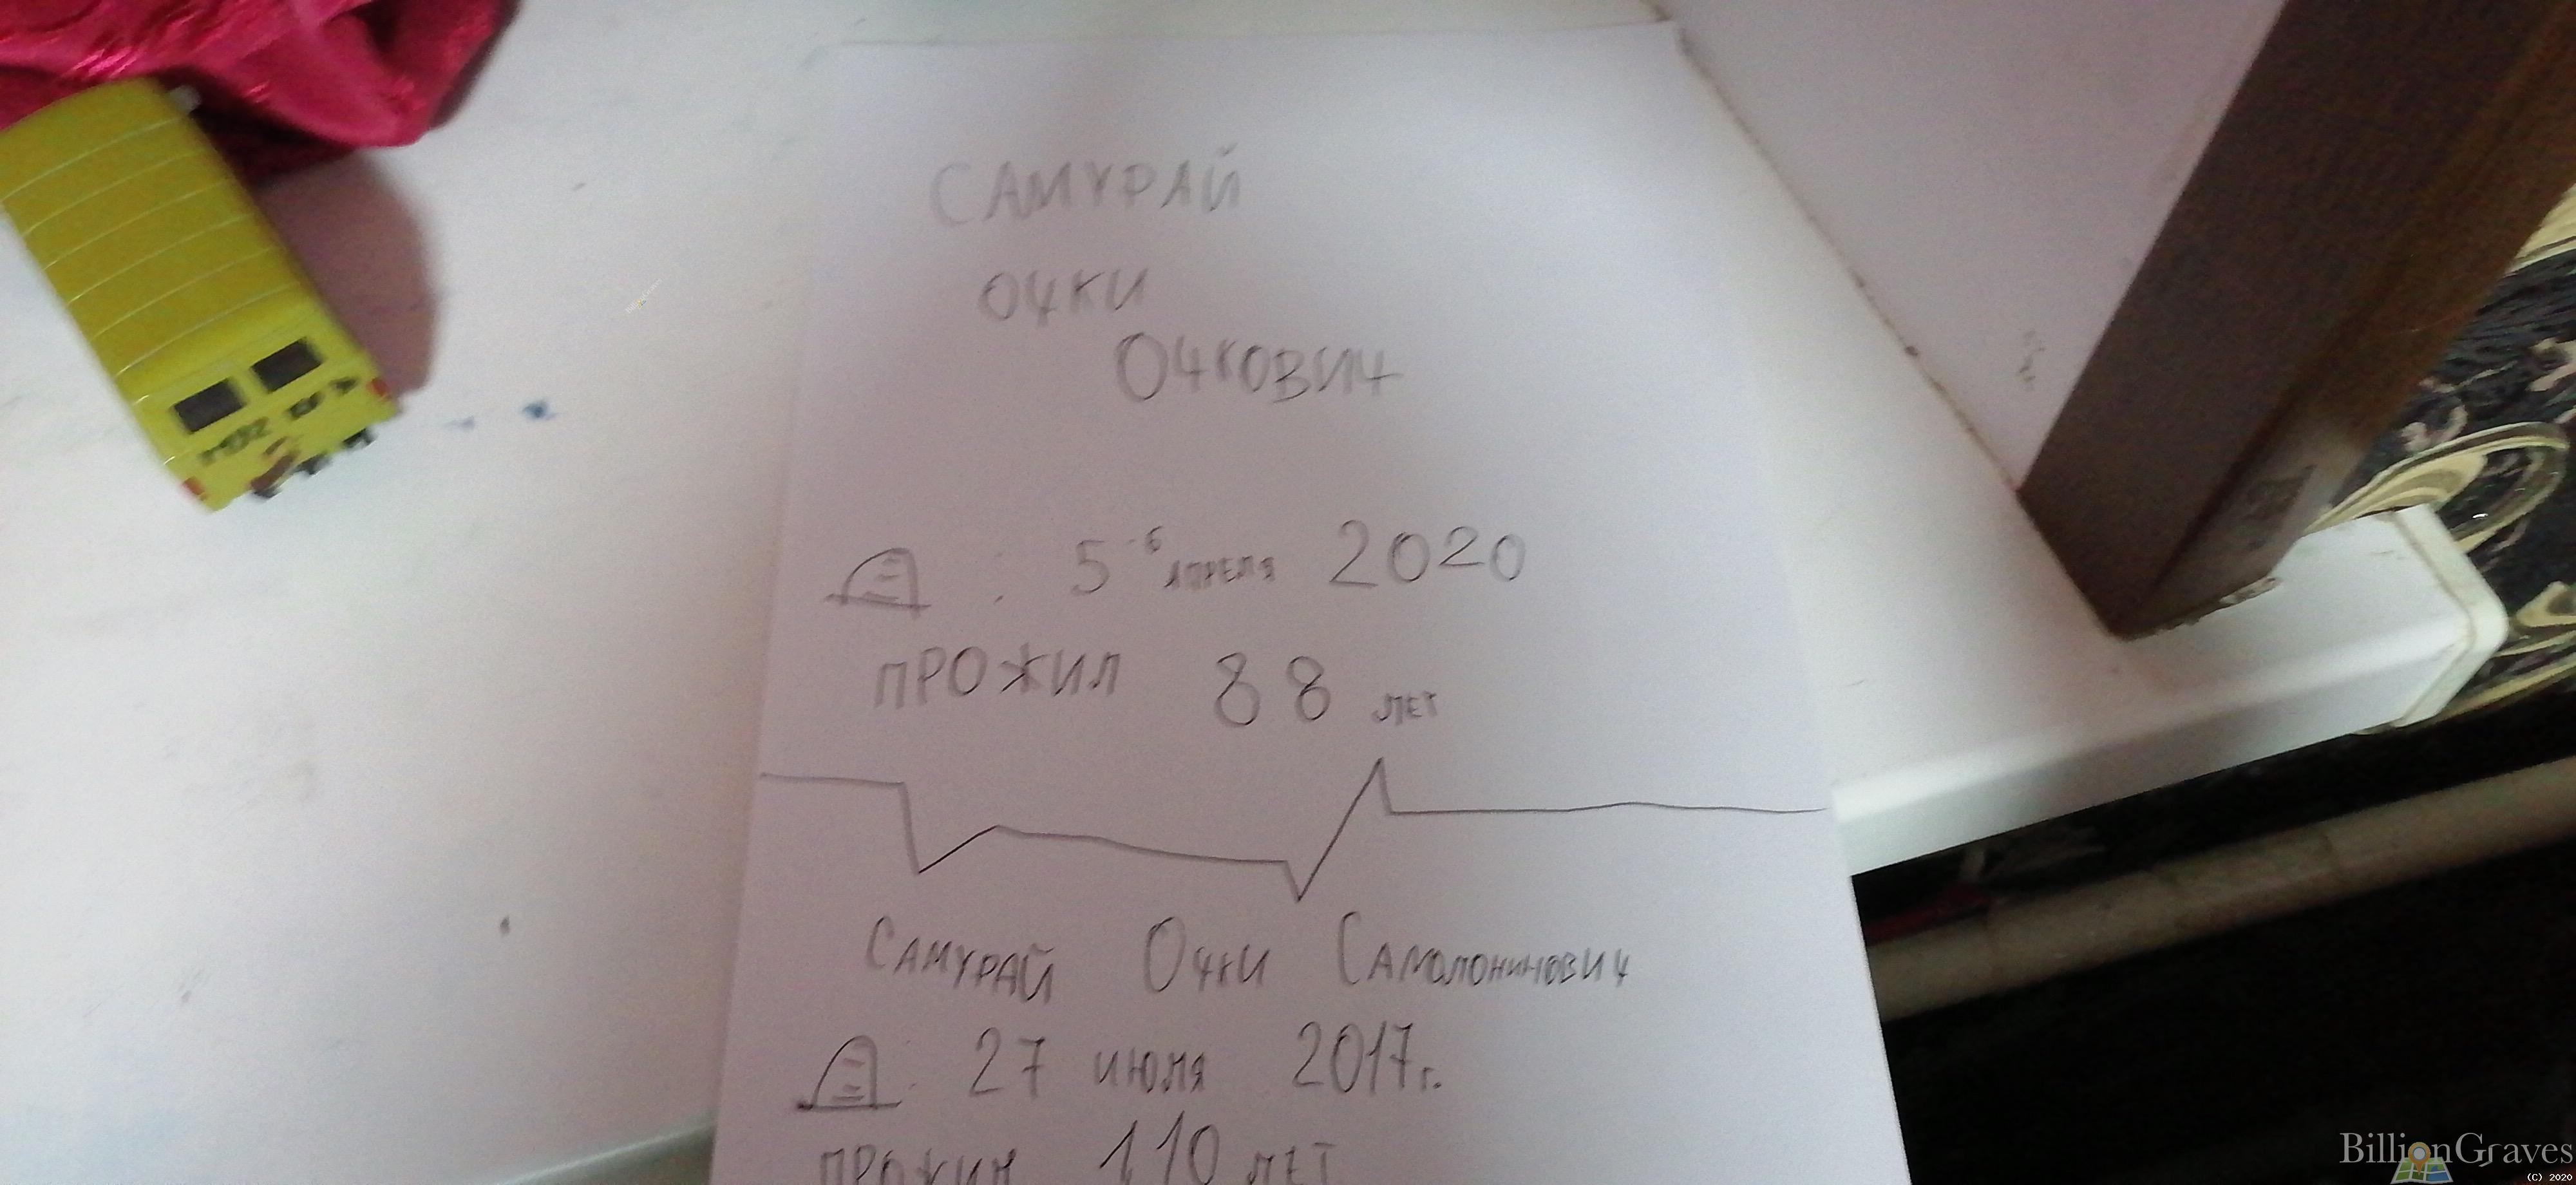 САМУРАЙ
ОЧКИ
ОЧКОВИЧ
: 5-6 АПРЕЛЯ 2020
ПРОЖИЛ 88 ЛЕТ
САМУРАЙ ОЧКИ САМОЛОНИНОВИЧ
: 27 ИЮЛЯ 2017г.
ПРОЖИЛ 110 ЛЕТ
BillionGraves
(C) 2020